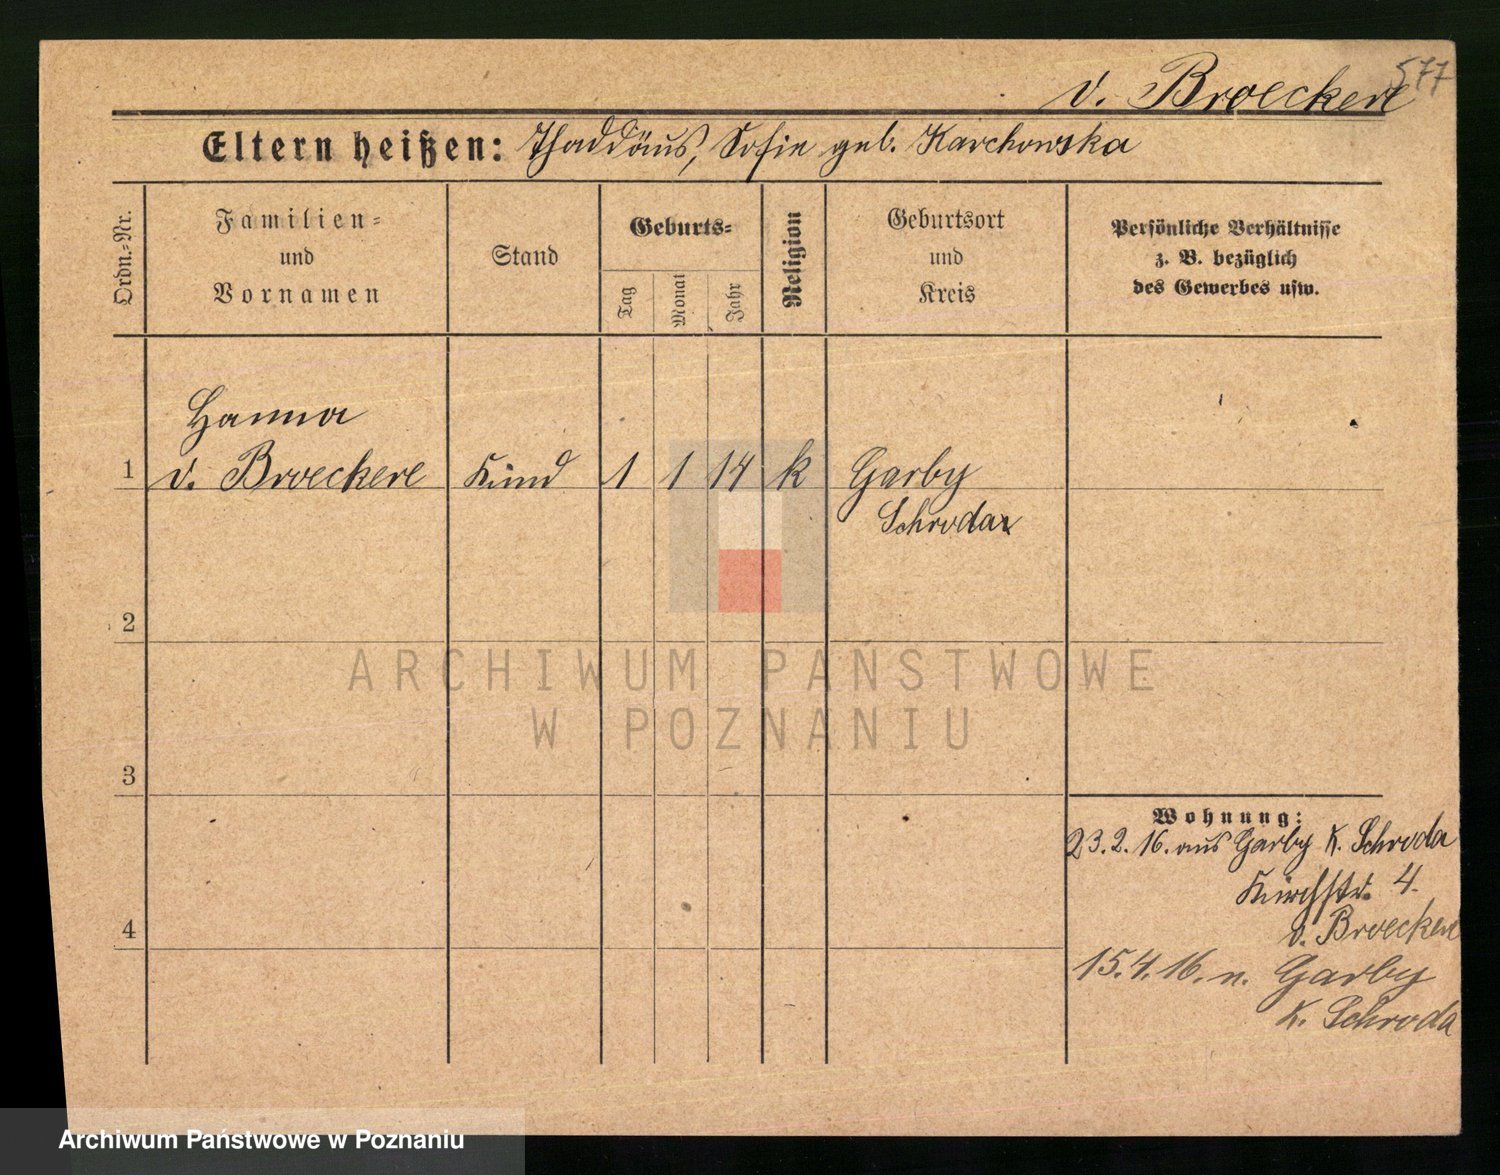 577
v. Broeckere
Eltern heißen: Thaddäus, Sofie geb. Karchowska
Ordn.-Nr.
Familien-
und
Vornamen
Stand
Geburts-
Tag
Monat
Jahr
Religion
Geburtsort
und
Kreis
Persönliche Verhältnisse
z. B. bezüglich
des Gewerbes usw.
Hanna
1 v. Broeckere Kind 1 1 14 k Garby
Schroda
2
3
4
Wohnung:
23.2.16. aus Garby K. Schroda
Kirchstr. 4.
v. Broeckere
15.4.16. n. Garby
K. Schroda
ARCHIWUM PAŃSTWOWE
W POZNANIU
Archiwum Państwowe w Poznaniu